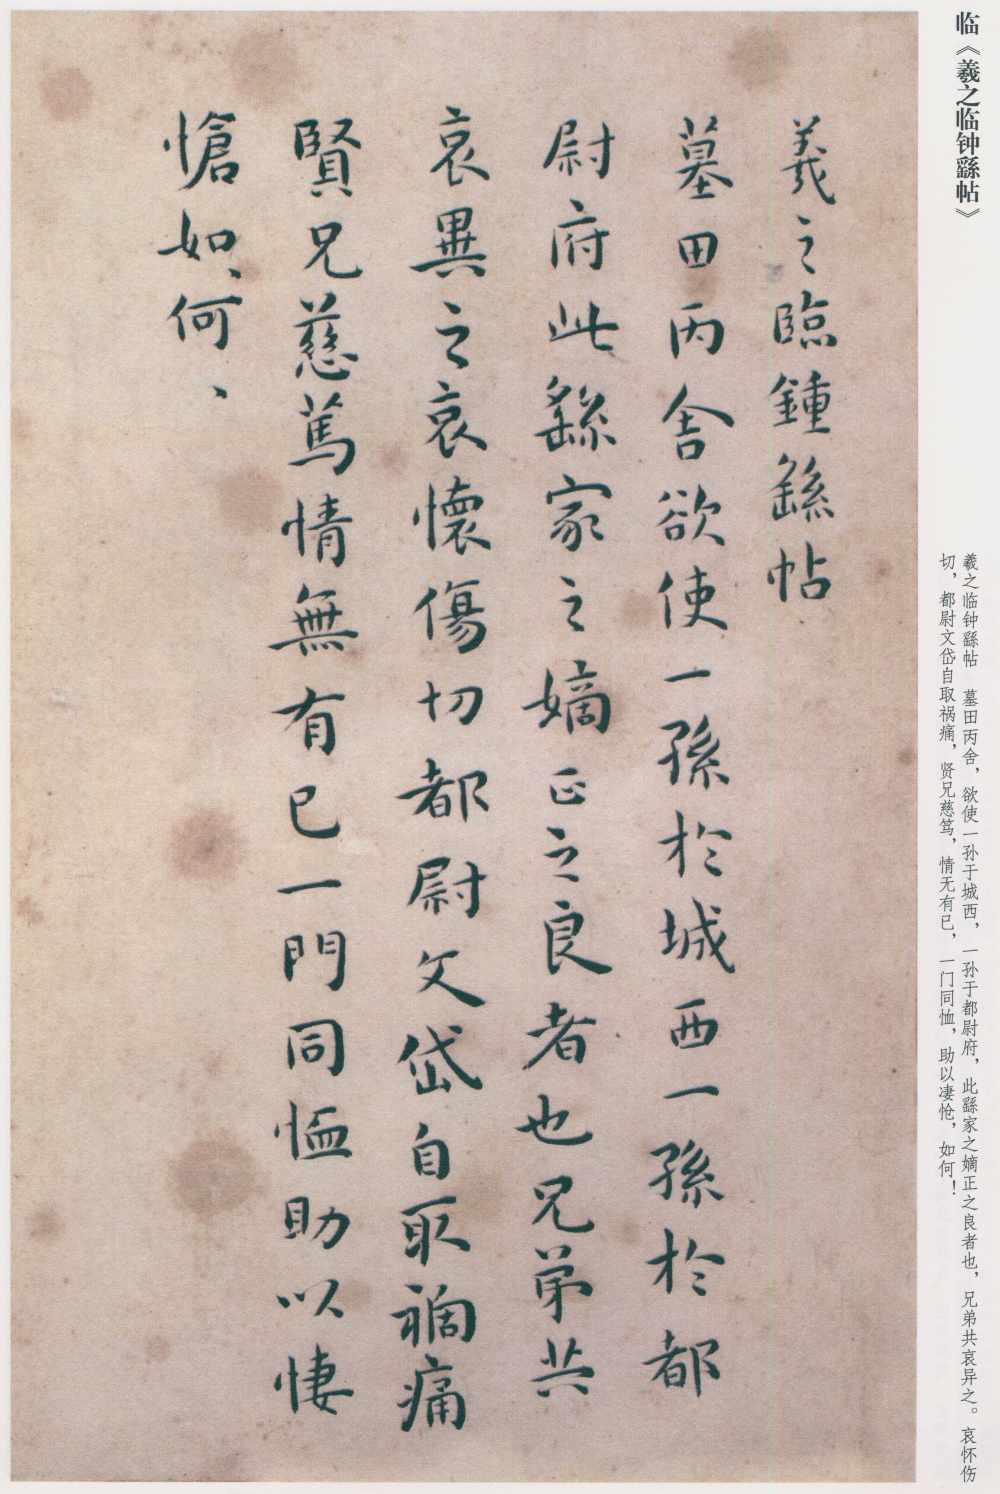 临《羲之临钟繇帖》
羲之临钟繇帖　墓田丙舍，欲使一孙于城西，一孙于都尉府，此繇家之嫡正之良者也，兄弟共哀异之。哀怀伤
切，都尉文岱自取祸痛，贤兄慈笃，情无有已，一门同恤，助以凄怆，如何！
羲之臨鍾繇帖
墓田丙舍欲使一孫於城西一孫於都
尉府此繇家之嫡正之良者也兄弟共
哀異之哀懷傷切都尉文岱自取禍痛
賢兄慈篤情無有已一門同恤助以悽
愴如、何、